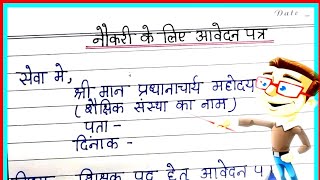 Date
नौकरी के लिए आवेदन पत्र
सेवा मे,
श्री मान प्रधानाचार्य महोदय
(शैक्षिक संस्था का नाम)
पता -
दिनांक -
शिक्षक पद हेतु आवेदन प